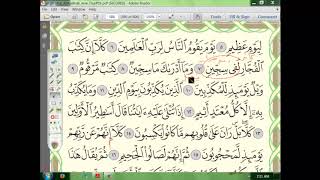 (SECURED) - Adobe Reader
لِيَوْمٍ عَظِيمٍ ٥ يَوْمَ يَقُومُ ٱلنَّاسُ لِرَبِّ ٱلْعَٰلَمِينَ ٦ كَلَّآ إِنَّ كِتَٰبَ
ٱلْفُجَّارِ لَفِى سِجِّينٍ ٧ وَمَآ أَدْرَىٰكَ مَا سِجِّينٌ ٨ كِتَٰبٌ مَّرْقُومٌ ٩
وَيْلٌ يَوْمَئِذٍ لِّلْمُكَذِّبِينَ ١٠ ٱلَّذِينَ يُكَذِّبُونَ بِيَوْمِ ٱلدِّينِ ١١ وَمَا يُكَذِّبُ
بِهِۦٓ إِلَّا كُلُّ مُعْتَدٍ أَثِيمٍ ١٢ إِذَا تُتْلَىٰ عَلَيْهِ ءَايَٰتُنَا قَالَ أَسَٰطِيرُ ٱلْأَوَّلِينَ
١٣ كَلَّا بَلْ رَانَ عَلَىٰ قُلُوبِهِم مَّا كَانُوا۟ يَكْسِبُونَ ١٤ كَلَّآ إِنَّهُمْ عَن رَّبِّهِمْ
يَوْمَئِذٍ لَّمَحْجُوبُونَ ١٥ ثُمَّ إِنَّهُمْ لَصَالُوا۟ ٱلْجَحِيمِ ١٦ ثُمَّ يُقَالُ هَٰذَا